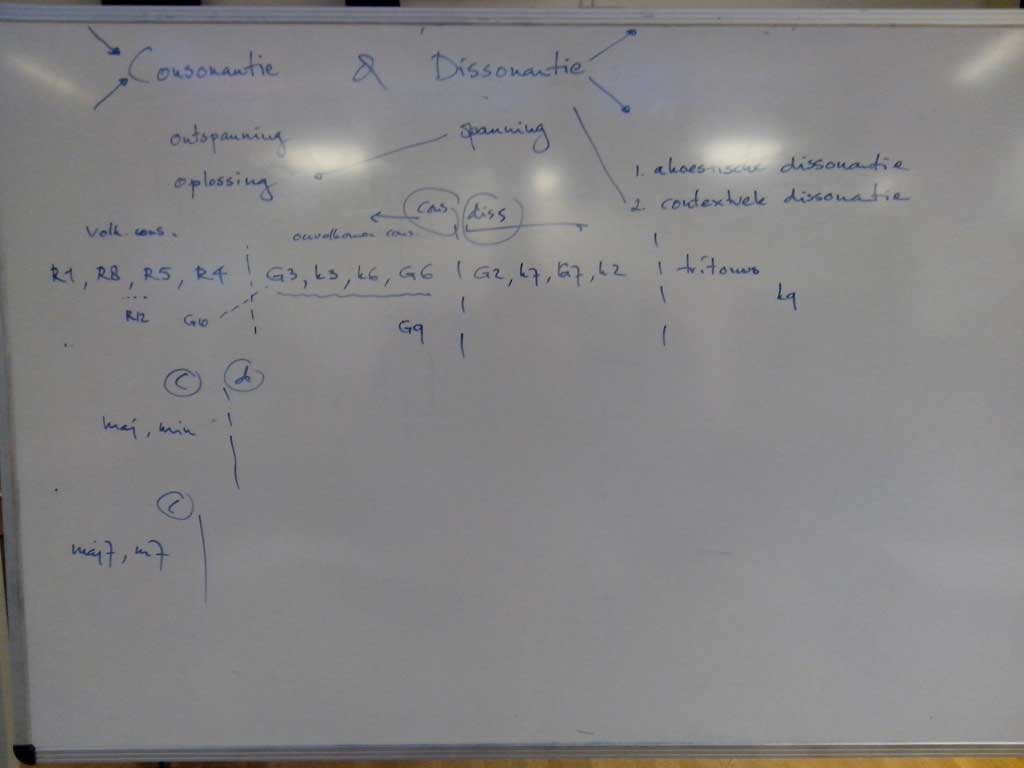 Consonantie & Dissonantie
ontspanning spanning
oplossing
1. akoestische dissonantie
2. contextuele dissonantie
cons diss
Volk. cons. onvolkomen cons.
R1, R8, R5, R4 G3, k3, k6, G6 G2, k7, G7, k2 tritonus
R12 G10 G9 k9
C d
maj, min
C
maj7, m7